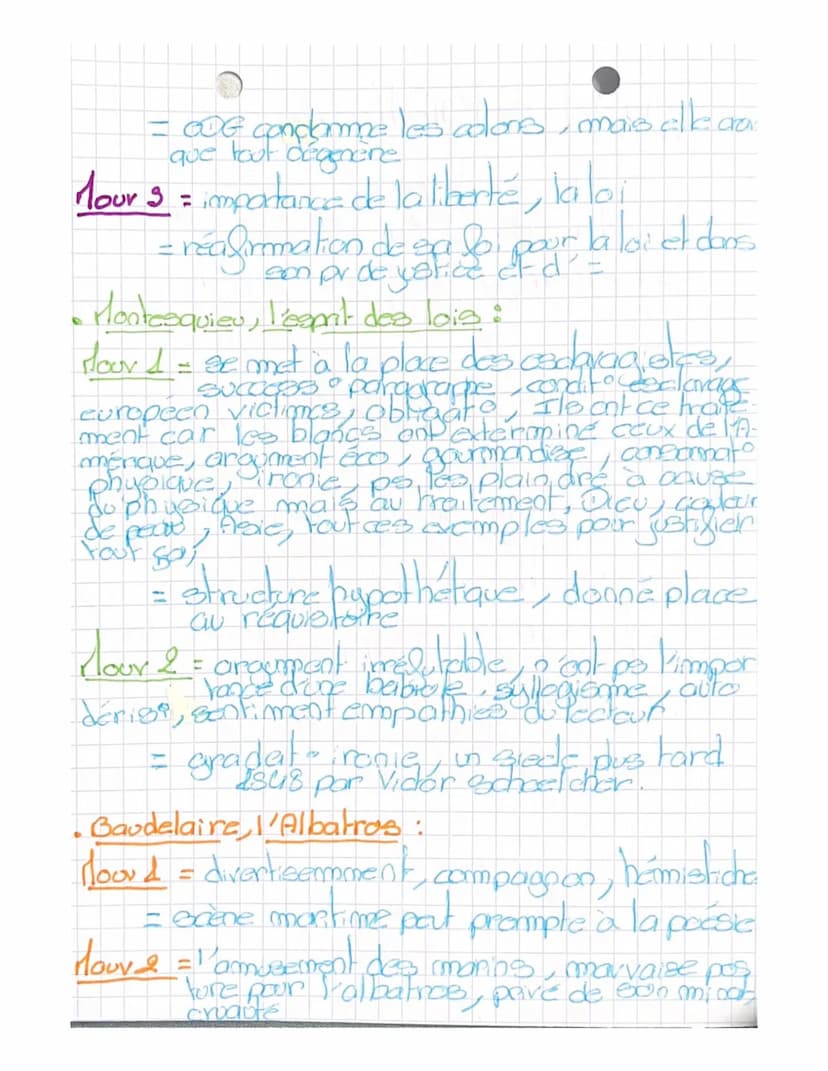 = ODG condamne les colons, mais elle
que tout dégénère
Mouv 3 = importance de la liberté, la loi
= réaffirmation de sa foi pour la loi et dans
son pv de justice et d' =
• Montesquieu, l'esprit des lois :
Mouv 1 = se met à la place des esclavagistes,
success° paragraphe, condit° esclavage
européen victimes, obligat°, Ils ont ce traite-
ment car les blancs ont exterminé ceux de l'A-
mérique, argument éco, gourmandise, consommat°
physique, ironie, ps les plaindre à cause
du physique mais au traitement, Dieu, couleur
de peau, Asie, tout ces exemples pour justifier
tout ça,
= structure hypothétique, donne place
au réquisitoire
Mouv 2 = argument irréfutable, n'ont ps l'impor
tance d'une babiole, syllogisme, auto
déris°, sentiment empathies du lecteur
= gradat° ironie, un siecle plus tard
1848 par Victor Schoelcher.
• Baudelaire, l'Albatros :
Mouv 1 = divertissemment, compagnon, hémistiche
= scène maritime peut prompte à la poésie
Mouv 2 = l'amusement des marins, mauvaise pos
ture pour l'albatros, privé de son
cruauté